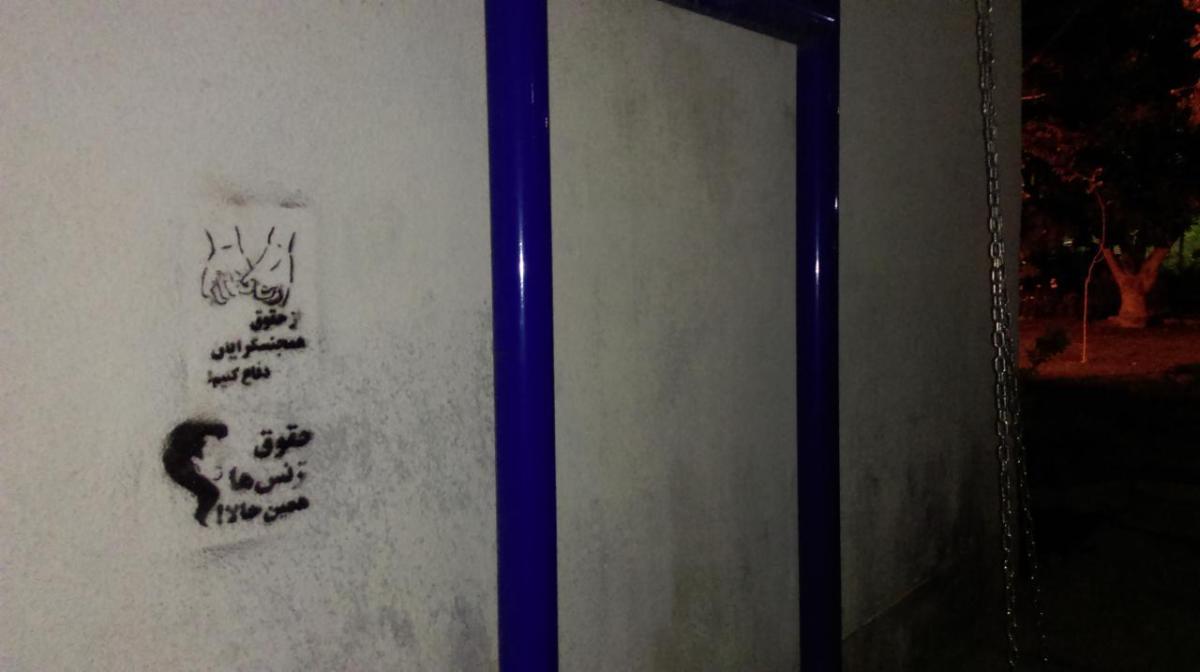 از حقوق
همجنسگرایان
دفاع کنیم!
حقوق
ترنس‌ها
همین حالا!